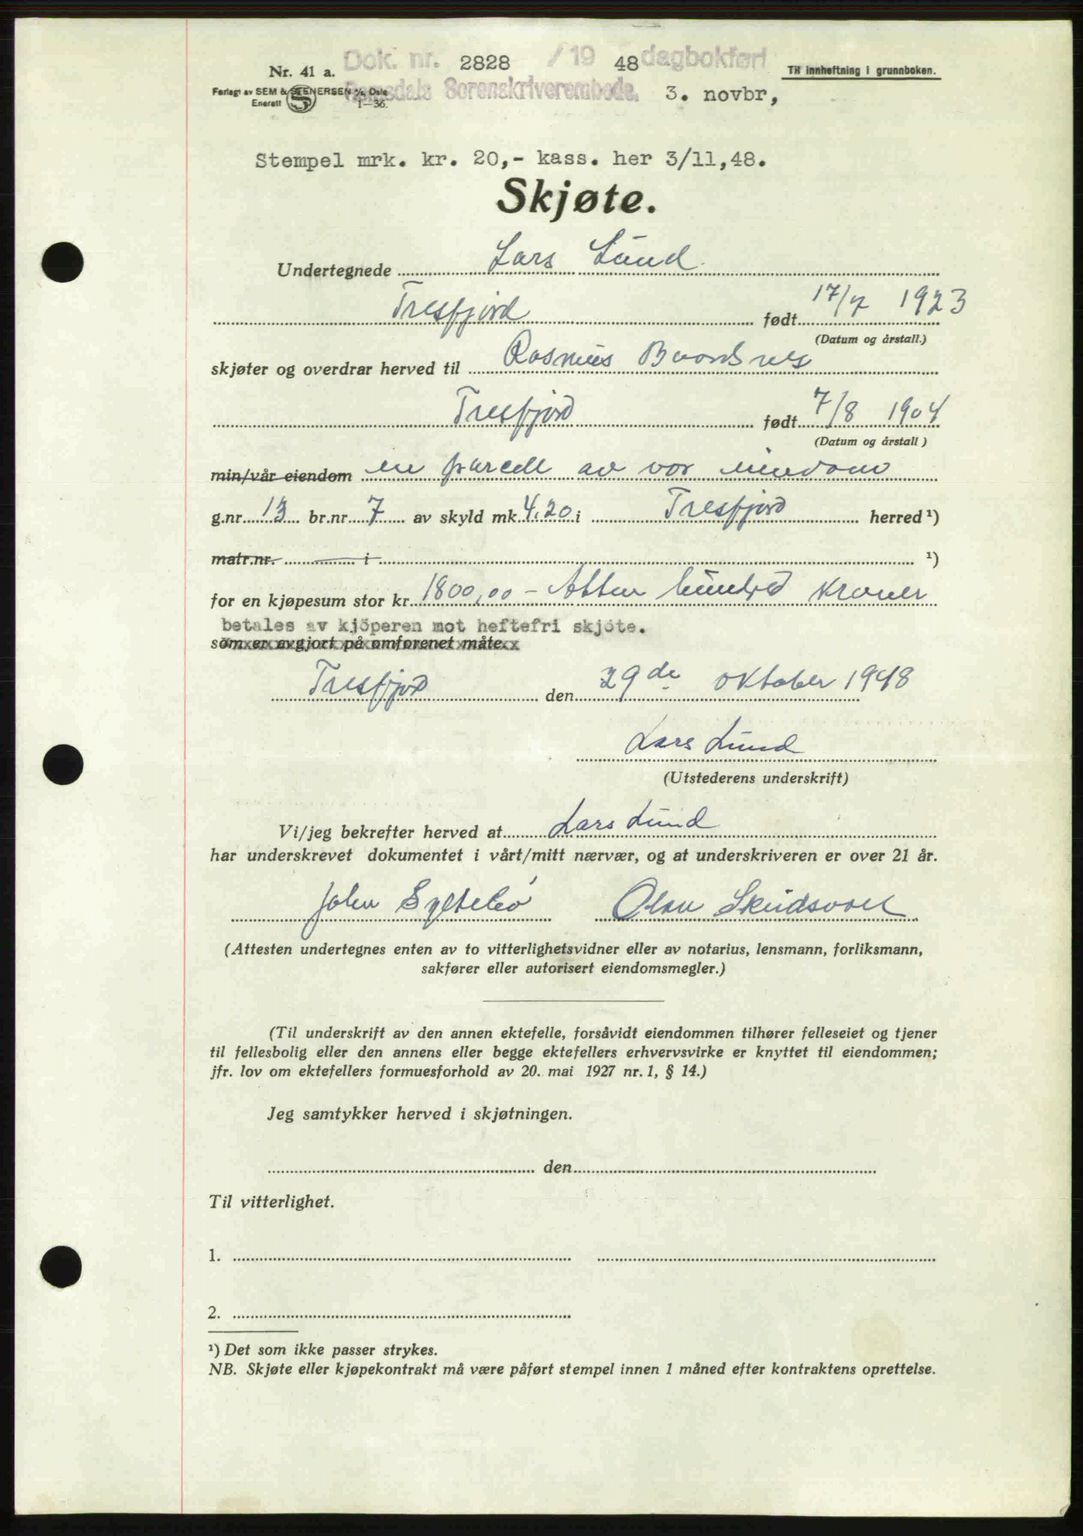 Dok. nr. 2828 /19 48 dagbokført
Nr. 41 a.
Til innheftning i grunnboken.
Forlagt av SEM & STENERSEN A/S, Oslo
Enerett
S
1—36.
Romsdals Sorenskriverembede, 3. novbr,
Stempel mrk. kr. 20,- kass. her 3/11,48.
Skjøte.
Undertegnede Lars Lund
Tresfjord født 17/7 1923
(Datum og årstall.)
skjøter og overdrar herved til Rasmus
Tresfjord født 7/8 1904
(Datum og årstall )
min/vår eiendom en parcell av vor eiendom
g.nr. 13 br.nr 7 av skyld mk. 4.20 i Tresfjord herred ¹)
matr.nr. i ¹)
for en kjøpesum stor kr. 1800,00 - Atten hundred kroner
betales av kjöperen mot heftefri skjöte.
som er avgjort på omførenet måte.
Tresfjord den 29de oktober 1948
Lars Lund
(Utstederens underskrift)
Vi/jeg bekrefter herved at Lars Lund
har underskrevet dokumentet i vårt/mitt nærvær, og at underskriveren er over 21 år.
John Syltebö Olav
(Attesten undertegnes enten av to vitterlighetsvidner eller av notarius, lensmann, forliksmann,
sakfører eller autorisert eiendomsmegler.)
(Til underskrift av den annen ektefelle, forsåvidt eiendommen tilhører felleseiet og tjener
til fellesbolig eller den annens eller begge ektefellers erhvervsvirke er knyttet til eiendommen;
jfr. lov om ektefellers formuesforhold av 20. mai 1927 nr. 1, § 14.)
Jeg samtykker herved i skjøtningen.
den
Til vitterlighet.
1.
2.
¹) Det som ikke passer strykes.
NB. Skjøte eller kjøpekontrakt må være påført stempel innen 1 måned efter kontraktens oprettelse.